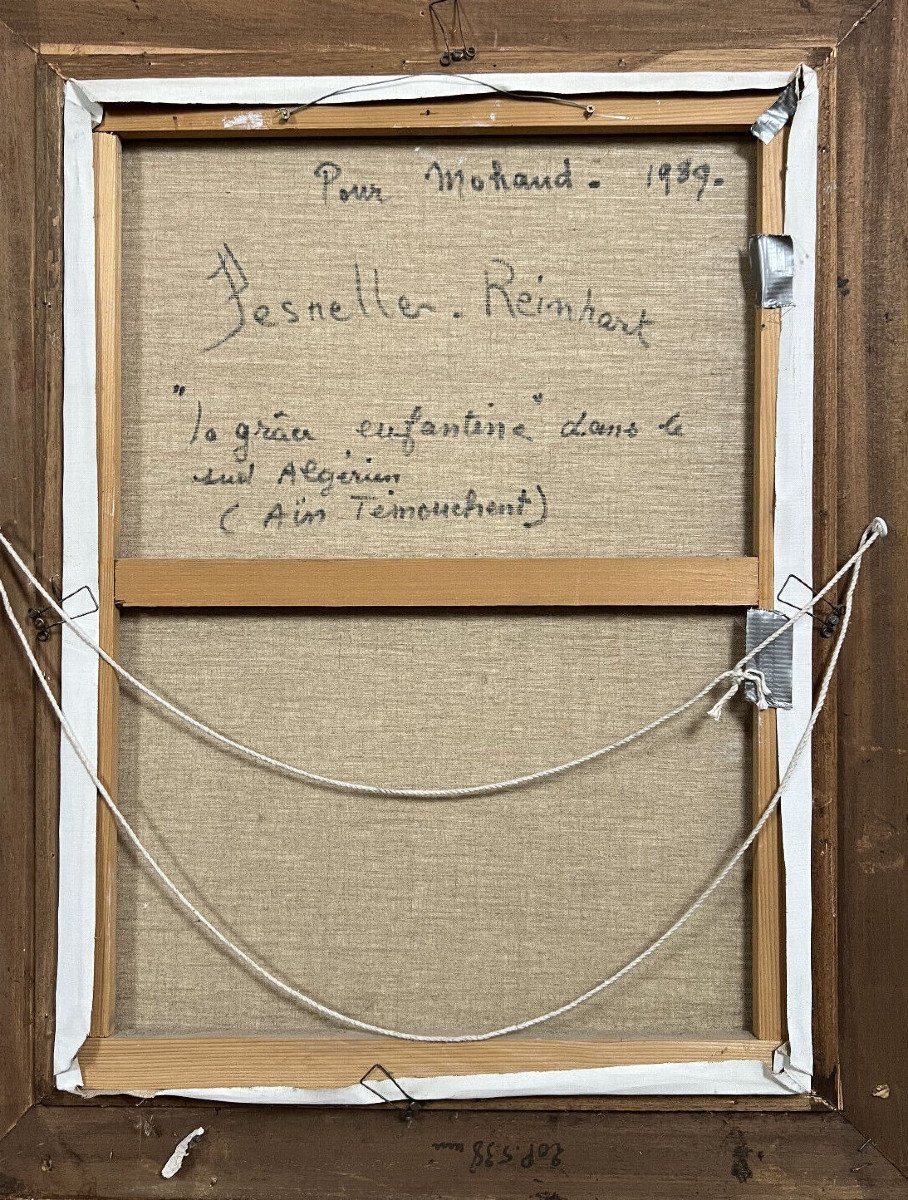 Pour Mohand - 1989.
Besneller. Reimhart
"la grâce enfantine" dans le
sud Algérien
( Aïn Témouchent)